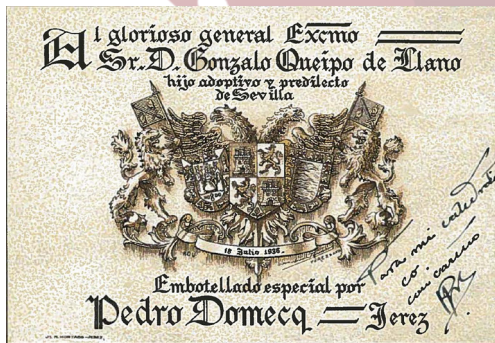 Al glorioso general Excmo
Sr. D. Gonzalo Queipo de Llano
hijo adoptivo y predilecto
de Sevilla
18 Julio 1936.
Embotellado especial por
Pedro Domecq = Jerez
Para mi
co
con cariño